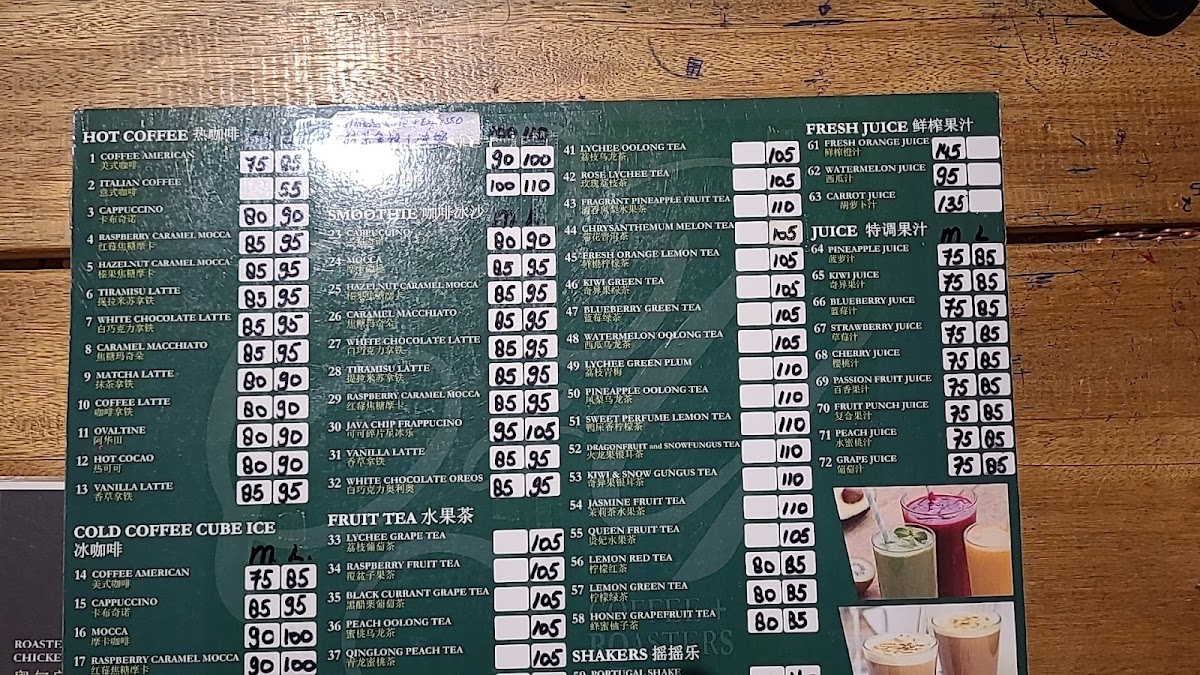 HOT COFFEE 热咖啡
1 COFFEE AMERICAN 75 85
美式咖啡
2 ITALIAN COFFEE 55
意式咖啡
3 CAPPUCCINO 80 90
卡布奇诺
4 RASPBERRY CARAMEL MOCCA 85 95
红莓焦糖摩卡
5 HAZELNUT CARAMEL MOCCA 85 95
榛果焦糖摩卡
6 TIRAMISU LATTE 85 95
提拉米苏拿铁
7 WHITE CHOCOLATE LATTE 85 95
白巧克力拿铁
8 CARAMEL MACCHIATO 85 95
焦糖玛奇朵
9 MATCHA LATTE 80 90
抹茶拿铁
10 COFFEE LATTE 80 90
咖啡拿铁
11 OVALTINE 80 90
阿华田
12 HOT COCAO 80 90
热可可
13 VANILLA LATTE 85 95
香草拿铁
COLD COFFEE CUBE ICE
冰咖啡 M L.
14 COFFEE AMERICAN 75 85
美式咖啡
15 CAPPUCCINO 85 95
卡布奇诺
16 MOCCA 90 100
摩卡咖啡
17 RASPBERRY CARAMEL MOCCA 90 100
红莓焦糖摩卡
90 100
100 110
SMOOTHIE 咖啡冰沙 M L
23 CAPPUCCINO 80 90
24 MOCCA 85 95
25 HAZELNUT CARAMEL MOCCA 85 95
26 CARAMEL MACCHIATO 85 95
焦糖玛奇朵
27 WHITE CHOCOLATE LATTE 85 95
白巧克力拿铁
28 TIRAMISU LATTE 85 95
提拉米苏拿铁
29 RASPBERRY CARAMEL MOCCA 85 95
红莓焦糖摩卡
30 JAVA CHIP FRAPPUCINO 95 105
可可碎片星冰乐
31 VANILLA LATTE 85 95
香草拿铁
32 WHITE CHOCOLATE OREOS 85 95
白巧克力奥利奥
FRUIT TEA 水果茶
33 LYCHEE GRAPE TEA 105
荔枝葡萄茶
34 RASPBERRY FRUIT TEA 105
覆盆子果茶
35 BLACK CURRANT GRAPE TEA 105
黑醋栗葡萄茶
36 PEACH OOLONG TEA 105
蜜桃乌龙茶
37 QINGLONG PEACH TEA 105
青龙蜜桃茶
41 LYCHEE OOLONG TEA 105
荔枝乌龙茶
42 ROSE LYCHEE TEA 105
玫瑰荔枝茶
43 FRAGRANT PINEAPPLE FRUIT TEA 110
清香凤梨水果茶
44 CHRYSANTHEMUM MELON TEA 105
45 FRESH ORANGE LEMON TEA 105
鲜橙柠檬茶
46 KIWI GREEN TEA 105
奇异果绿茶
47 BLUEBERRY GREEN TEA 105
蓝莓绿茶
48 WATERMELON OOLONG TEA 105
西瓜乌龙茶
49 LYCHEE GREEN PLUM 110
荔枝青梅
50 PINEAPPLE OOLONG TEA 110
凤梨乌龙茶
51 SWEET PERFUME LEMON TEA 110
鸭屎香柠檬茶
52 DRAGONFRUIT and SNOWFUNGUS TEA 110
火龙果银耳茶
53 KIWI & SNOW GUNGUS TEA 110
奇异果银耳茶
54 JASMINE FRUIT TEA 110
茉莉茶水果茶
55 QUEEN FRUIT TEA 105
贵妃水果茶
56 LEMON RED TEA 80 85
柠檬红茶
57 LEMON GREEN TEA 80 85
柠檬绿茶
58 HONEY GRAPEFRUIT TEA 80 85
蜂蜜柚子茶
COFFEE +
ROASTERS
SHAKERS 摇摇乐
59 PORTUGAL SHAKE
FRESH JUICE 鲜榨果汁
61 FRESH ORANGE JUICE 145
鲜榨橙汁
62 WATERMELON JUICE 95
西瓜汁
63 CARROT JUICE 135
胡萝卜汁
JUICE 特调果汁 M L
64 PINEAPPLE JUICE 75 85
菠萝汁
65 KIWI JUICE 75 85
奇异果汁
66 BLUEBERRY JUICE 75 85
蓝莓汁
67 STRAWBERRY JUICE 75 85
草莓汁
68 CHERRY JUICE 75 85
樱桃汁
69 PASSION FRUIT JUICE 75 85
百香果汁
70 FRUIT PUNCH JUICE 75 85
复合果汁
71 PEACH JUICE 75 85
水蜜桃汁
72 GRAPE JUICE 75 85
葡萄汁